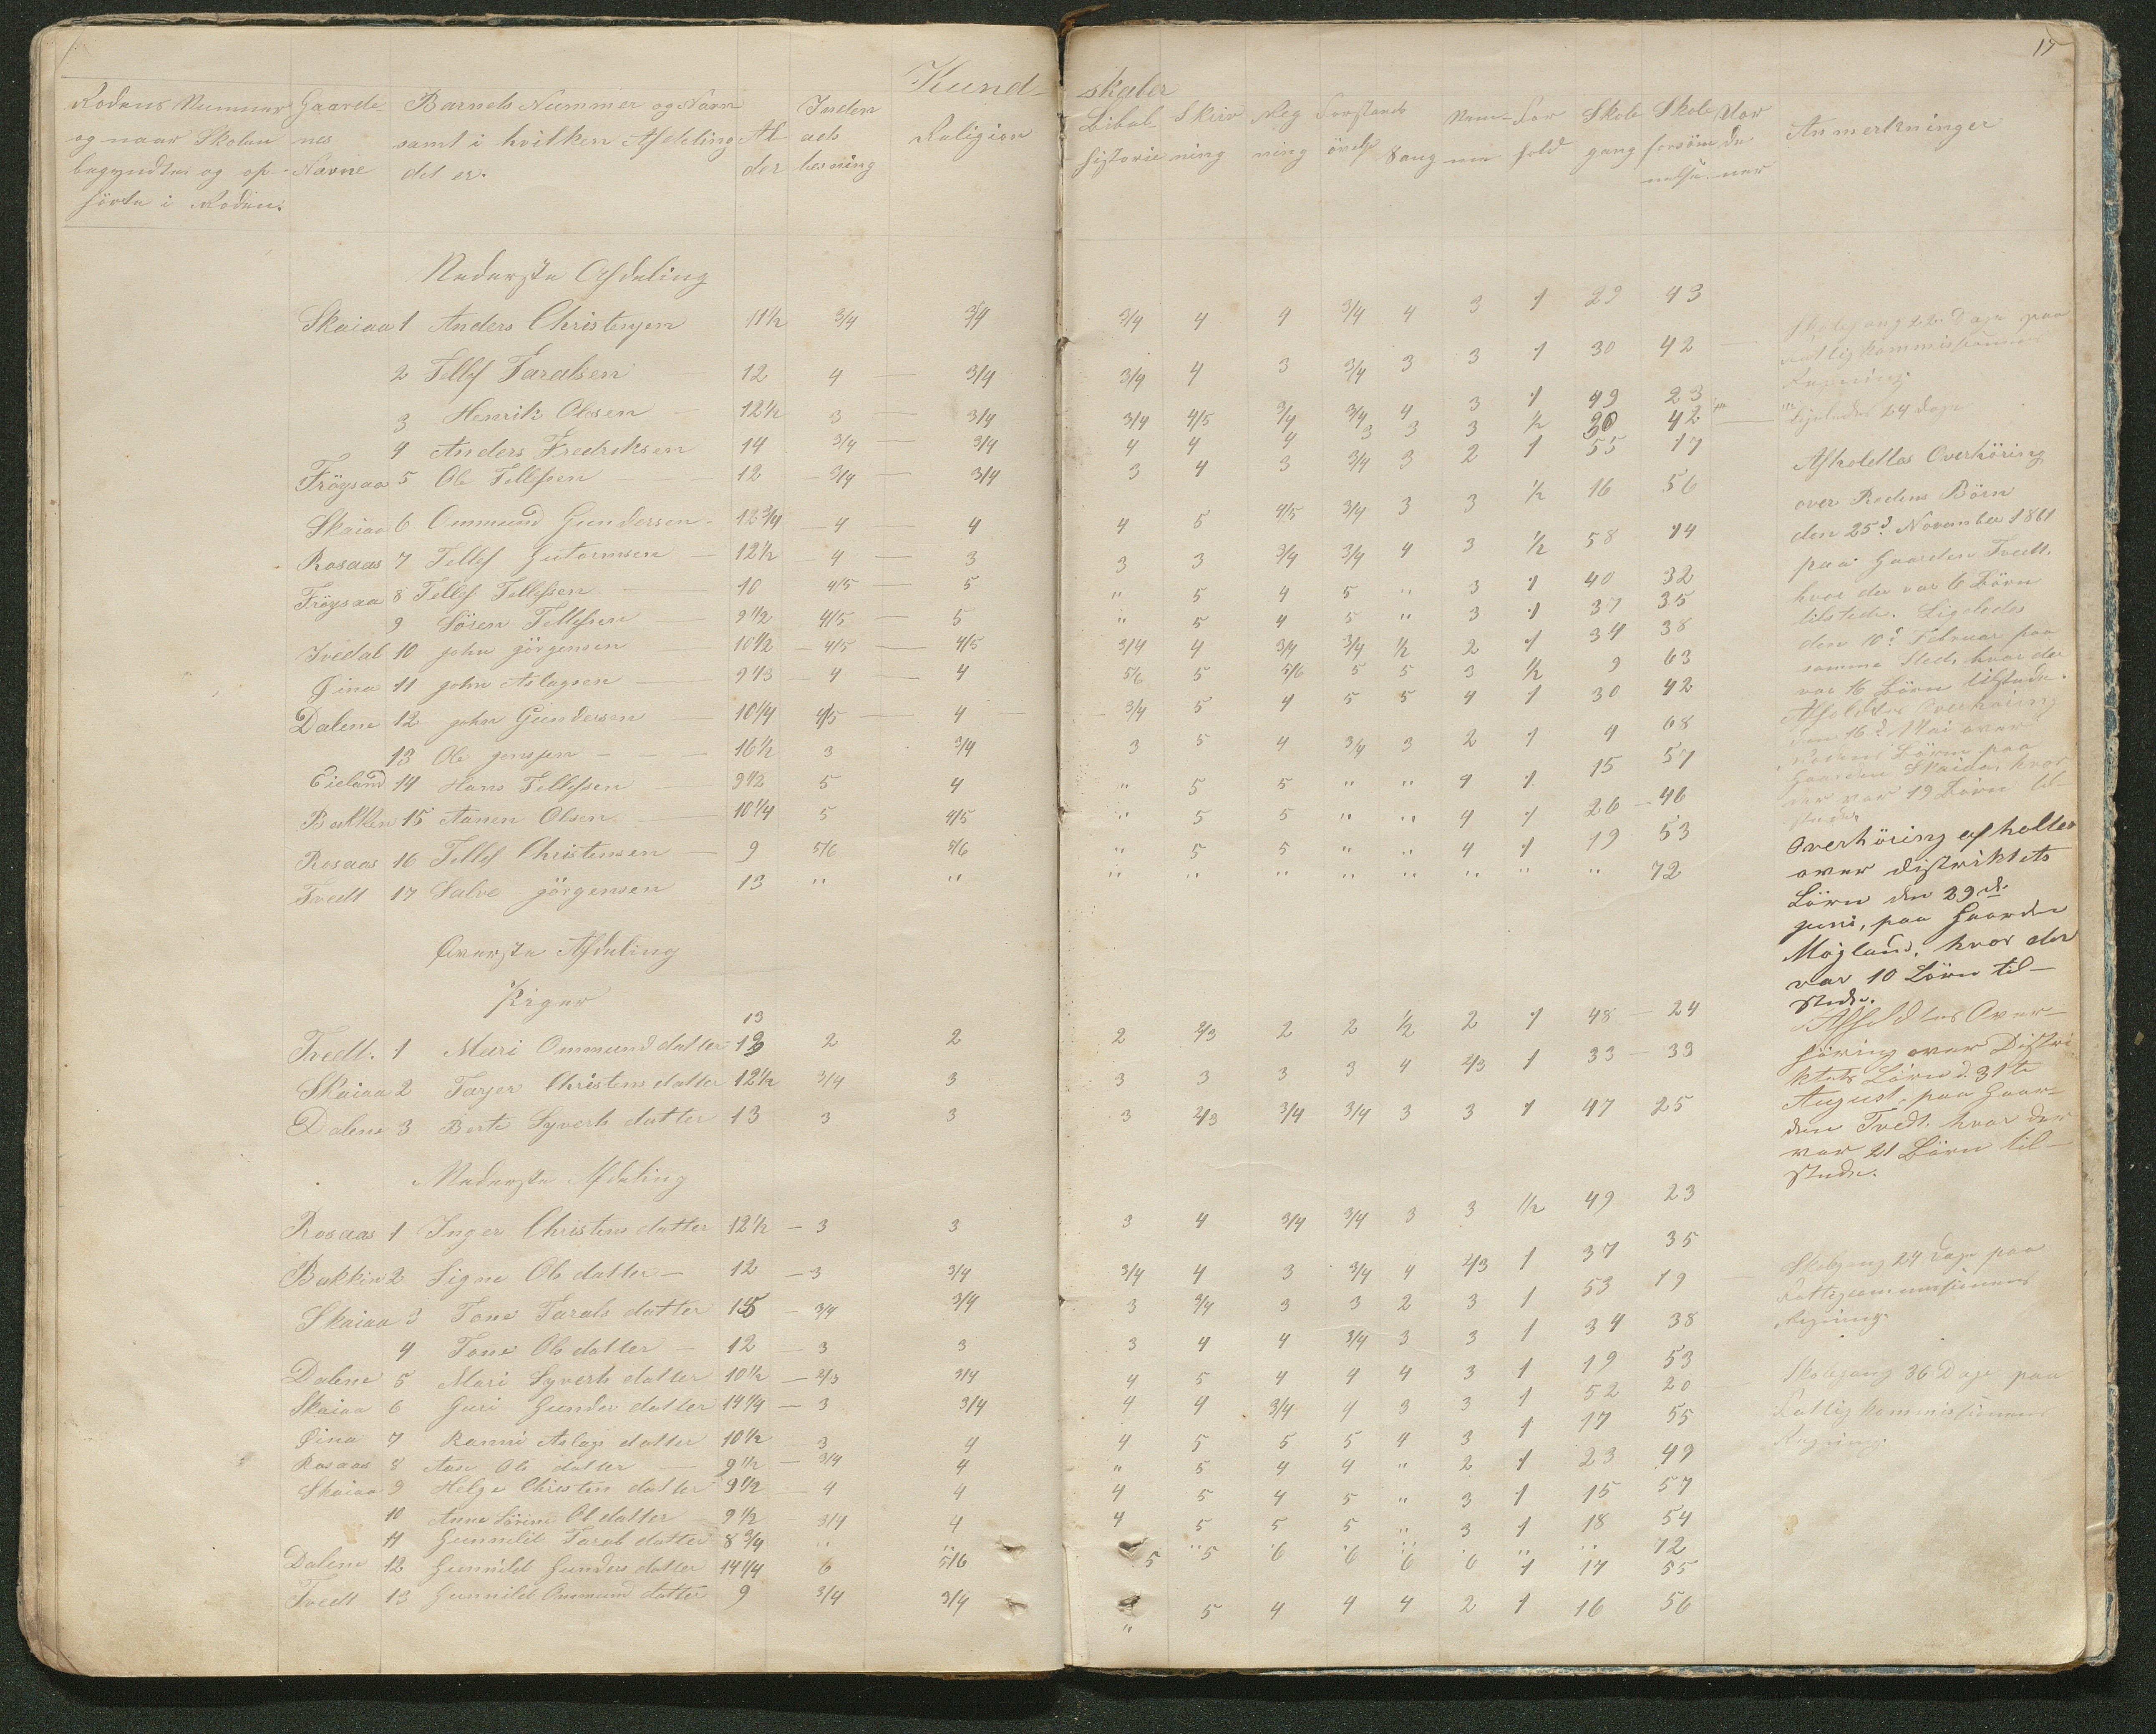 17
Kund- skaber
Rodens Nummer og naar Skolen begyndtes og op- hörte i Roden.
Gaarde nes Navne
Barnets Nummer og Navn samt i hvilken Afdeling det er.
Al der
Inden ads læsning
Religion
Bibel- historie
Skriv ning
Reg ning
Forstands övelse
Sang
Nem- me
For hold
Skole gang
Skole forsöm melse
Anmerkninger
Nederste Afdeling
Skaiaa 1 Anders Christensen 11½ 3/4 3/4 3/4 4 4 3/4 4 3 1 29 43
2 Tellef Taralsen 12 4 — 3/4 3/4 4 3 3/4 3 3 1 30 42 —
3 Henrik Olsen — 12½ 3 — 3/4 3/4 4/5 3/4 3/4 4 3 1 49 23
4 Anders Fredriksen 14 3/4 — 3/4 4 4 4 3 3 3 ½ 30 42 —
Fröysaa 5 Ole Tellefsen — 12 — 3/4 — 3/4 3 4 3 3/4 3 2 1 55 17
Skaiaa 6 Ommund Gundersen 12 3/4 — 4 — 4 4 5 4/5 3/4 3 3 ½ 16 56
Rosaas 7 Tellef Gutormsen — 12½ — 4 — 3 3 3 3/4 3/4 4 3 ½ 58 14
Fröysaa 8 Tellef Tellefsen — 10 4/5 — 5 " 5 4 5 " 3 1 40 32
9 Sören Tellefsen — 9½ 4/5 — 5 " 5 4 5 " 3 1 37 35
Ivedal 10 john jörgensen — 10½ — 4/5 — 4/5 3/4 4 3/4 3/4 ½ 2 1 34 38
Öina 11 john Aslagsen — 9 1/3 — 4 — 4 5/6 5 5/6 5 5 3 ½ 9 63
Dalene 12 john Gundersen — 10¼ 4/5 — 4 — 3/4 5 4 5 5 4 1 30 42
13 Ole jenssen — 16½ 3 3/4 3 5 4 3/4 3 2 1 4 68
Eieland 14 Hans Tellefsen — 9½ 5 4 " 5 5 " " 4 1 15 57
Bakken 15 Aanen Olsen — 10¼ 5 4/5 " 5 5 " " 4 1 26 — 46
Rosaas 16 Tellef Christensen — 9 5/6 5/6 " 5 5 " " 4 1 19 53
Tvedt 17 Salve jörgensen 13 " " " " " " " " " " 72
Överste Afdeling
Piger
13
Tvedt. 1 Mari Ommunddatter 13 2 2 2 2/3 2 2 ½ 2 1 48 — 24
Skaiaa 2 Tarjer Christensdatter 12½ 3/4 3 3 3 3 3 4 2/3 1 33 — 39
Dalene 3 Berte Syvertsdatter 13 3 3 3 2/3 3/4 3/4 3 3 1 47 25
Nederste Afdeling
Rosaas 1 Inger Christensdatter 12½ — 3 3 3 4 3/4 3/4 3 3 ½ 49 23
Bakken 2 Signe Olsdatter — 12 — 3 3/4 3/4 4 3 3/4 4 2/3 1 37 35
Skaiaa 3 Tone Taralsdatter 15 — 3/4 3/4 3 3/4 3 3 2 3 1 53 19 —
4 Tone Olsdatter — 12 — 3 3 3 4 4 3/4 3 3 1 34 38
Dalene 5 Mari Syvertsdatter 10½ — 2/3 3/4 4 5 4 4 4 3 1 19 53
Skaiaa 6 Guri Gundersdatter 14¼ — 3 3/4 4 4 3/4 4 3 3 1 52 20 —
Öina 7 Ranni Aslagsdatter 10½ — 3 4 4 5 5 5 4 3 1 17 55
Rosaas 8 Aase Olsdatter — 9½ — 3/4 4 " 5 4 4 " 2 1 23 49
Skaiaa 9 Helge Christensdatter 9½ — 4 4 4 5 4 5 " 3 1 15 57
10 Anne Sörine Olsdatter 9½ — 3/4 4 4 5 5 5 " 3 1 18 54
11 Gunnild Taralsdatter 8 3/4 " " " " " " " " " " 72
Dalene 12 Gunnild Gundersdatter 14¼ 6 5/6 5 5 6 6 6 6 1 17 55
Tvedt 13 Gunnild Ommunddatter 9 3/4 3/4 " 5 4 4 4 2 1 16 56
Skolegang 22 Dage paa
Fattigkommissionens
Regning.
Ligeledes 24 Dage
Afholdtes Overhöring
over Rodens Börn
den 25de November 1861
paa Gaarden Tvedt,
hvor der var 6 Börn
tilstede. Ligeledes
den 10de Februar paa
samme Sted, hvor der
var 16 Börn tilstede.
Afholdtes Overhöring
den 16de Mai over
Rodens Börn paa
Gaarden Skaiaa, hvor
der var 19 Börn til-
stede.
Overhöring afholtes
over distriktets
Börn den 29de
juni, paa Gaarden
Mögland, hvor der
var 10 Börn til-
stede.
Afholdtes Over-
höring over Distri
ktets Börn d. 31te
August, paa Gaar-
den Tvedt. hvor der
var 21 Börn til-
stede.
Skolegang 24 Dage paa
Fattigcommissionens
Regning.
Skolegang 36 Dage paa
Fattigkommissionens
Regning.